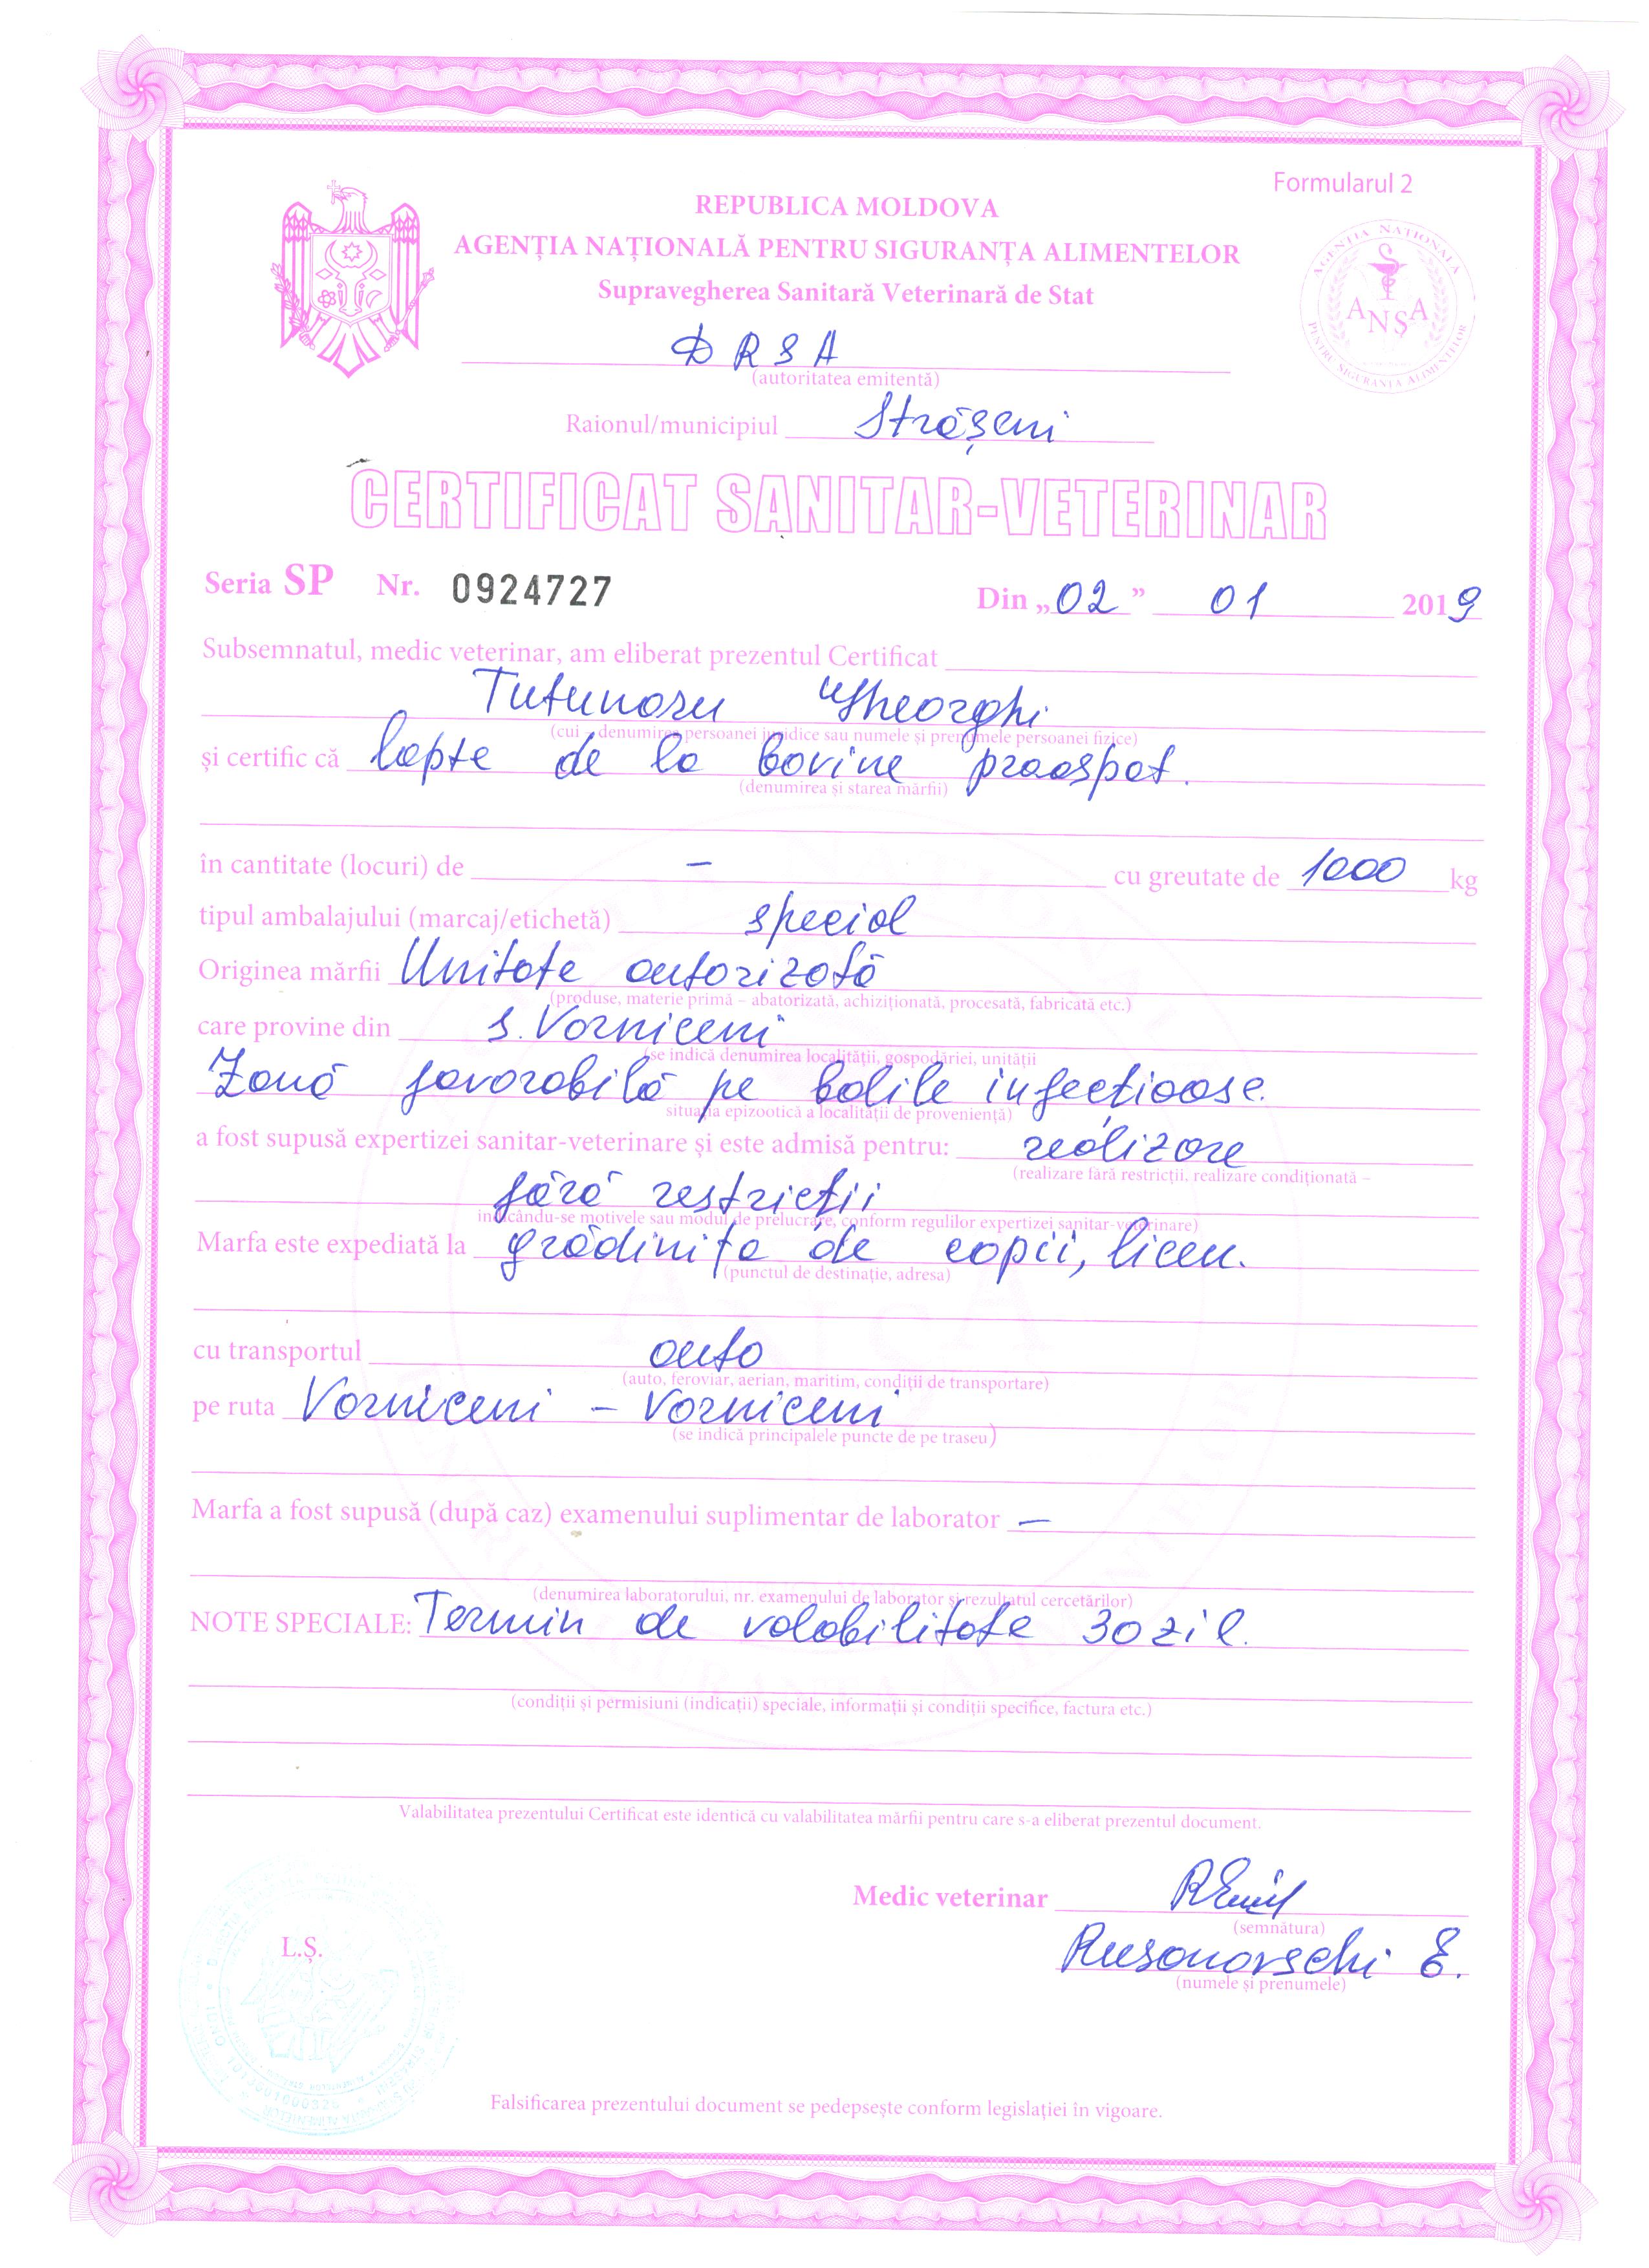 Formularul 2
REPUBLICA MOLDOVA
AGENȚIA NAȚIONALĂ PENTRU SIGURANȚA ALIMENTELOR
Supravegherea Sanitară Veterinară de Stat
AGENȚIA NAȚIONALĂ
ANSA
PENTRU SIGURANȚA ALIMENTELOR
DRSA
(autoritatea emitentă)
Raionul/municipiul Strășeni
CERTIFICAT SANITAR-VETERINAR
Seria SP Nr. 0924727 Din „02” 01 2019
Subsemnatul, medic veterinar, am eliberat prezentul Certificat
Tutunaru Gheorghi
(cui – denumirea persoanei juridice sau numele și prenumele persoanei fizice)
și certific că lapte de la bovine proaspat.
(denumirea și starea mărfii)
în cantitate (locuri) de – cu greutate de 1000 kg
tipul ambalajului (marcaj/etichetă) special
Originea mărfii Unitate autorizată
(produse, materie primă – abatorizată, achiziționată, procesată, fabricată etc.)
care provine din s. Vorniceni
(se indică denumirea localității, gospodăriei, unității
Zonă favorabilă pe bolile infecțioase.
situația epizootică a localității de proveniență)
a fost supusă expertizei sanitar-veterinare și este admisă pentru: realizare
(realizare fără restricții, realizare condiționată –
fără restricții
indicându-se motivele sau modul de prelucrare, conform regulilor expertizei sanitar-veterinare)
Marfa este expediată la grădinița de copii, liceu.
(punctul de destinație, adresa)
cu transportul auto
(auto, feroviar, aerian, maritim, condiții de transportare)
pe ruta Vorniceni – Vorniceni
(se indică principalele puncte de pe traseu)
Marfa a fost supusă (după caz) examenului suplimentar de laborator –
(denumirea laboratorului, nr. examenului de laborator și rezultatul cercetărilor)
NOTE SPECIALE: Termin de valabilitate 30 zil.
(condiții și permisiuni (indicații) speciale, informații și condiții specifice, factura etc.)
Valabilitatea prezentului Certificat este identică cu valabilitatea mărfii pentru care s-a eliberat prezentul document.
Medic veterinar
(semnătura)
L.Ș.
Rusanovschi E.
(numele și prenumele)
Falsificarea prezentului document se pedepsește conform legislației în vigoare.